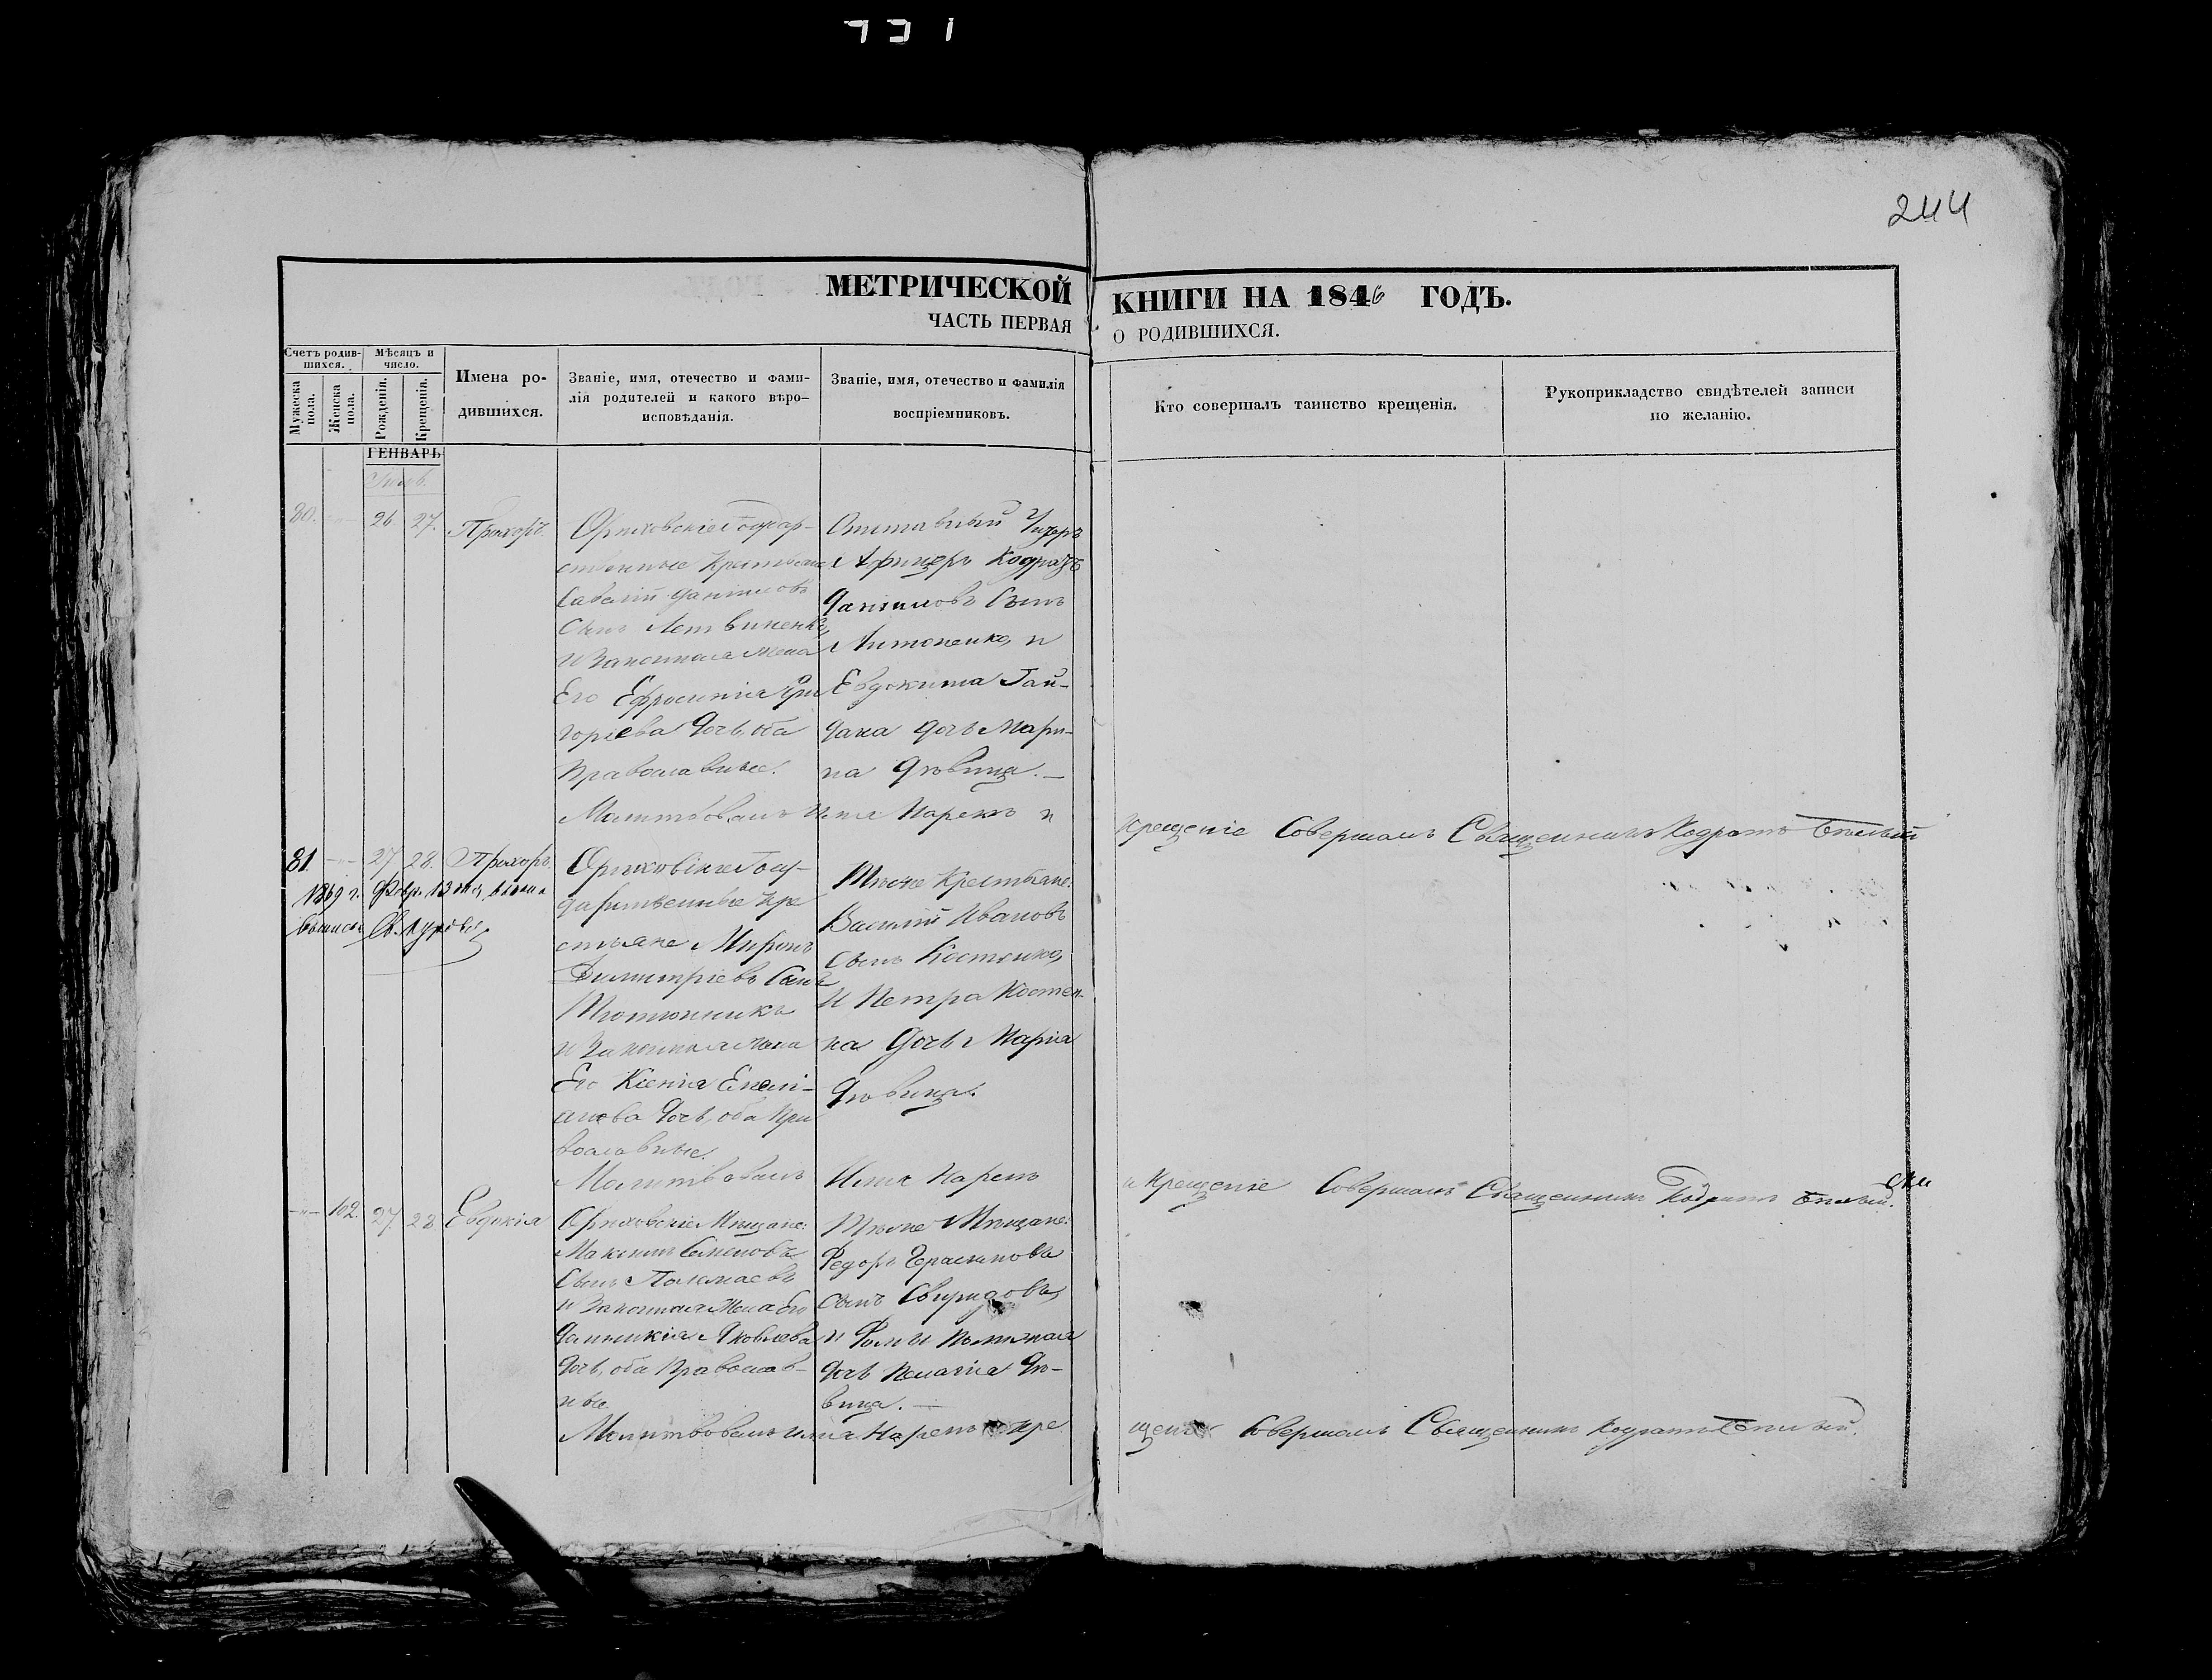 244
МЕТРИЧЕСКОЙ КНИГИ НА 1846 ГОДЪ.
ЧАСТЬ ПЕРВАЯ О РОДИВШИХСЯ.
Счетъ родив-
шихся.
Мужеска пола.
Женска пола.
Мѣсяцъ и
число.
Рожденія.
Крещенія.
Имена ро-
дившихся.
Званіе, имя, отечество и фами-
лія родителей и какого вѣро-
исповѣданія.
Званіе, имя, отечество и фамилія
воспріемниковъ.
Кто совершалъ таинство крещенія.
Рукоприкладство свидѣтелей записи
по желанію.
ГЕНВАРЬ
80. 26 27. Прохоръ
Орѣховскіе Государ-
ственные Крестьяне
Савелій Даниловъ
Сынъ Летвиненко,
и Законная Жена
Его Ефросинія Гри
горіева Дочь, оба
Православные.
Отставный Унтеръ
Афицеръ Кодратъ
Данииловъ Сынъ
Антоненко, и
Евдокима Гай-
дака дочь Мари-
на Дѣвица.
Молитвовалъ Имя Нарекъ и Крещеніе Совершалъ Священникъ Кодратъ Бѣлый
81. 27 28. Прохоръ.
1869 г. Февр. 13
Орѣховскіе Госу-
дарственные Кре
стьяне Миронъ
Димитріевъ Сынъ
Тютюнникъ
и Законная Жена
Его Ксенія Емели-
анова Дочь, оба Пра
вославные.
Тѣже Крестьяне:
Василій Ивановъ
сынъ Костенко,
И Петра Костен-
ка Дочь Марія
Дѣвица.
Молитвовалъ Имя Нарекъ и Крещеніе Совершалъ Священникъ Кодратъ Бѣлый.
102. 27 28 Евдокія
Орѣховскіе Мѣщане:
Максимъ Семеновъ
Сынъ
и Законная Жена Его
Яковлева
Дочь, оба Православ-
ные
Тѣже Мѣщане:
Федоръ Герасимовъ
сынъ Свиридовъ,
и Фомы
дочь Пелагія Дѣ-
вица.
Молитвовалъ имя Нарекъ и Кре
щеніе Совершалъ Священникъ Кодратъ Бѣлый.